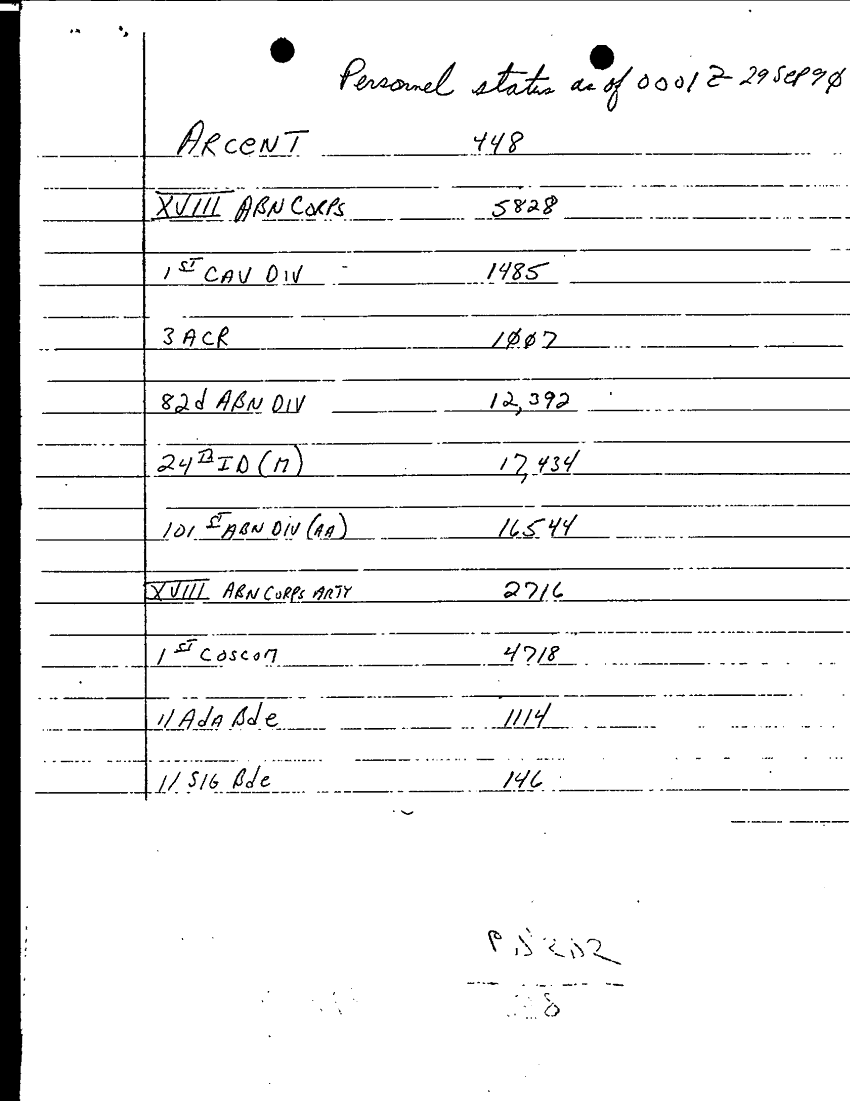 Personnel status as of 0001 Z 29 SEP 90
ARCENT 448
XVIII ABN CORPS 5828
1ST CAV DIV - 1485
3 ACR 1007
82d ABN DIV 12,392
24TH ID (M) 17,434
101 ST ABN DIV (AA) 16544
XVIII ABN CORPS ARTY 2716
1ST COSCOM 4718
11 AdA Bde 1114
11 SIG Bde 146